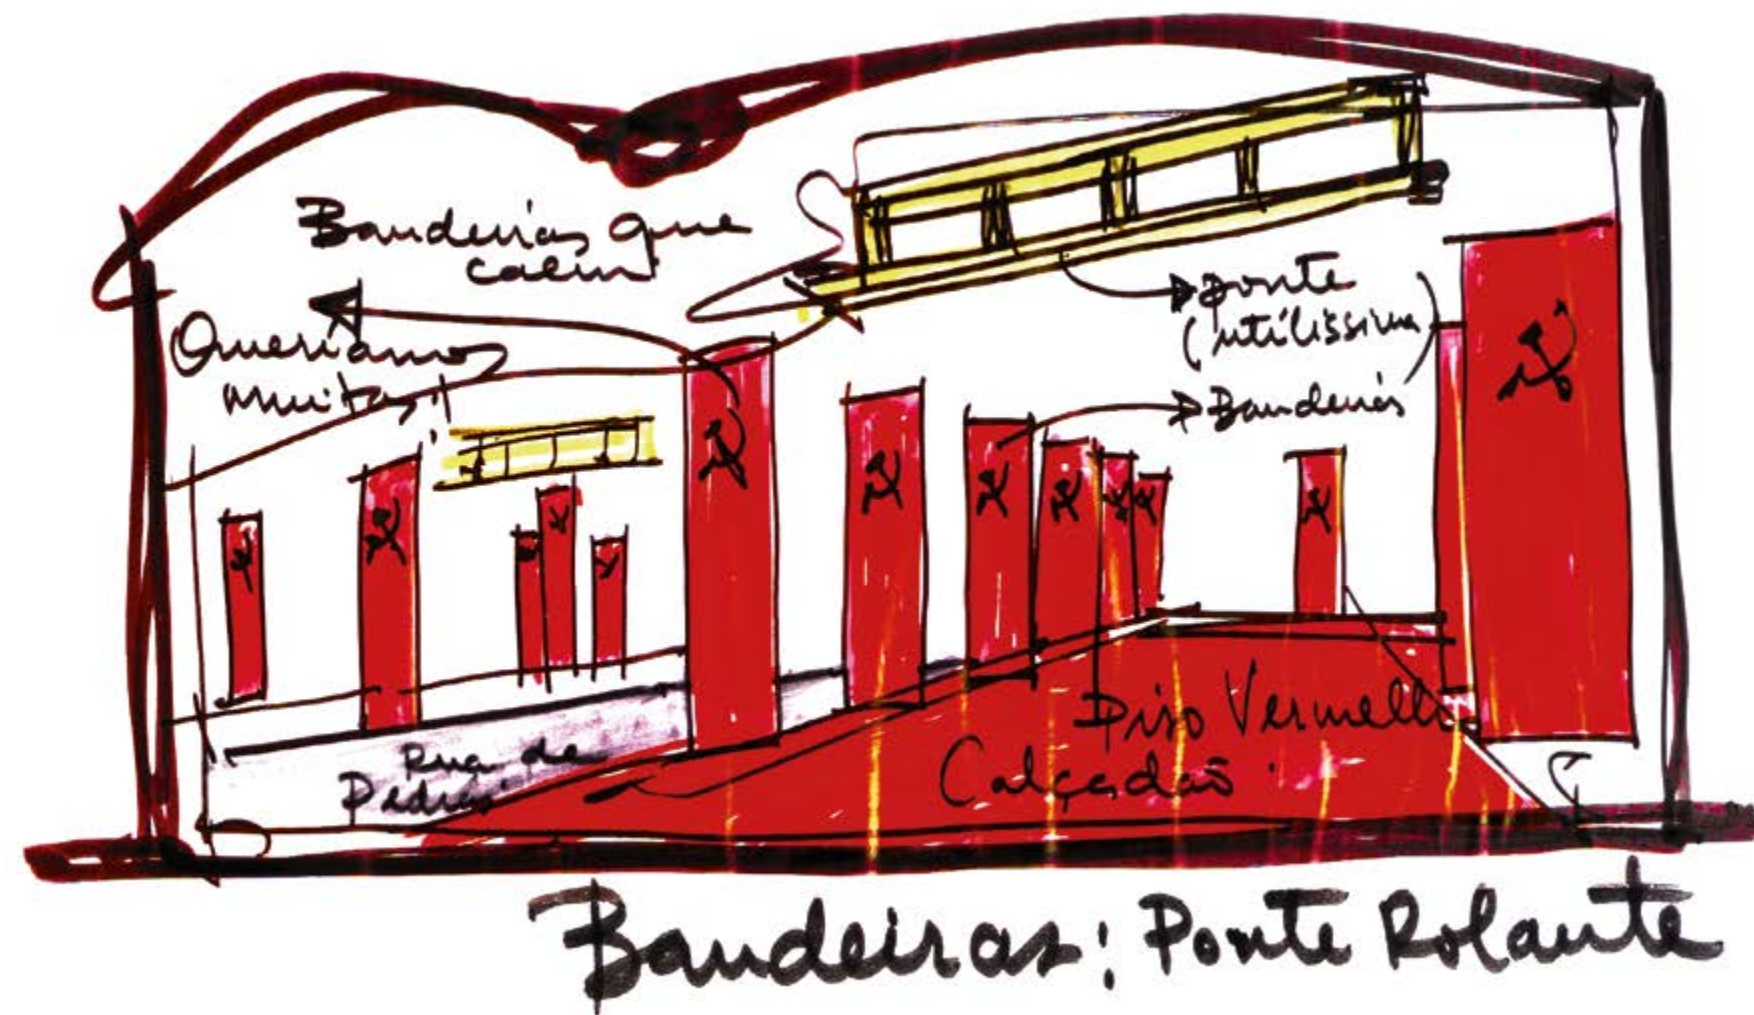 Bandeiras que
caem
Queríamos
muitas!!
ponte
(utilíssima)
Bandeiras
Piso Vermelho
Calçadão.
Rua de
Pedras
Bandeiras: Ponte Rolante